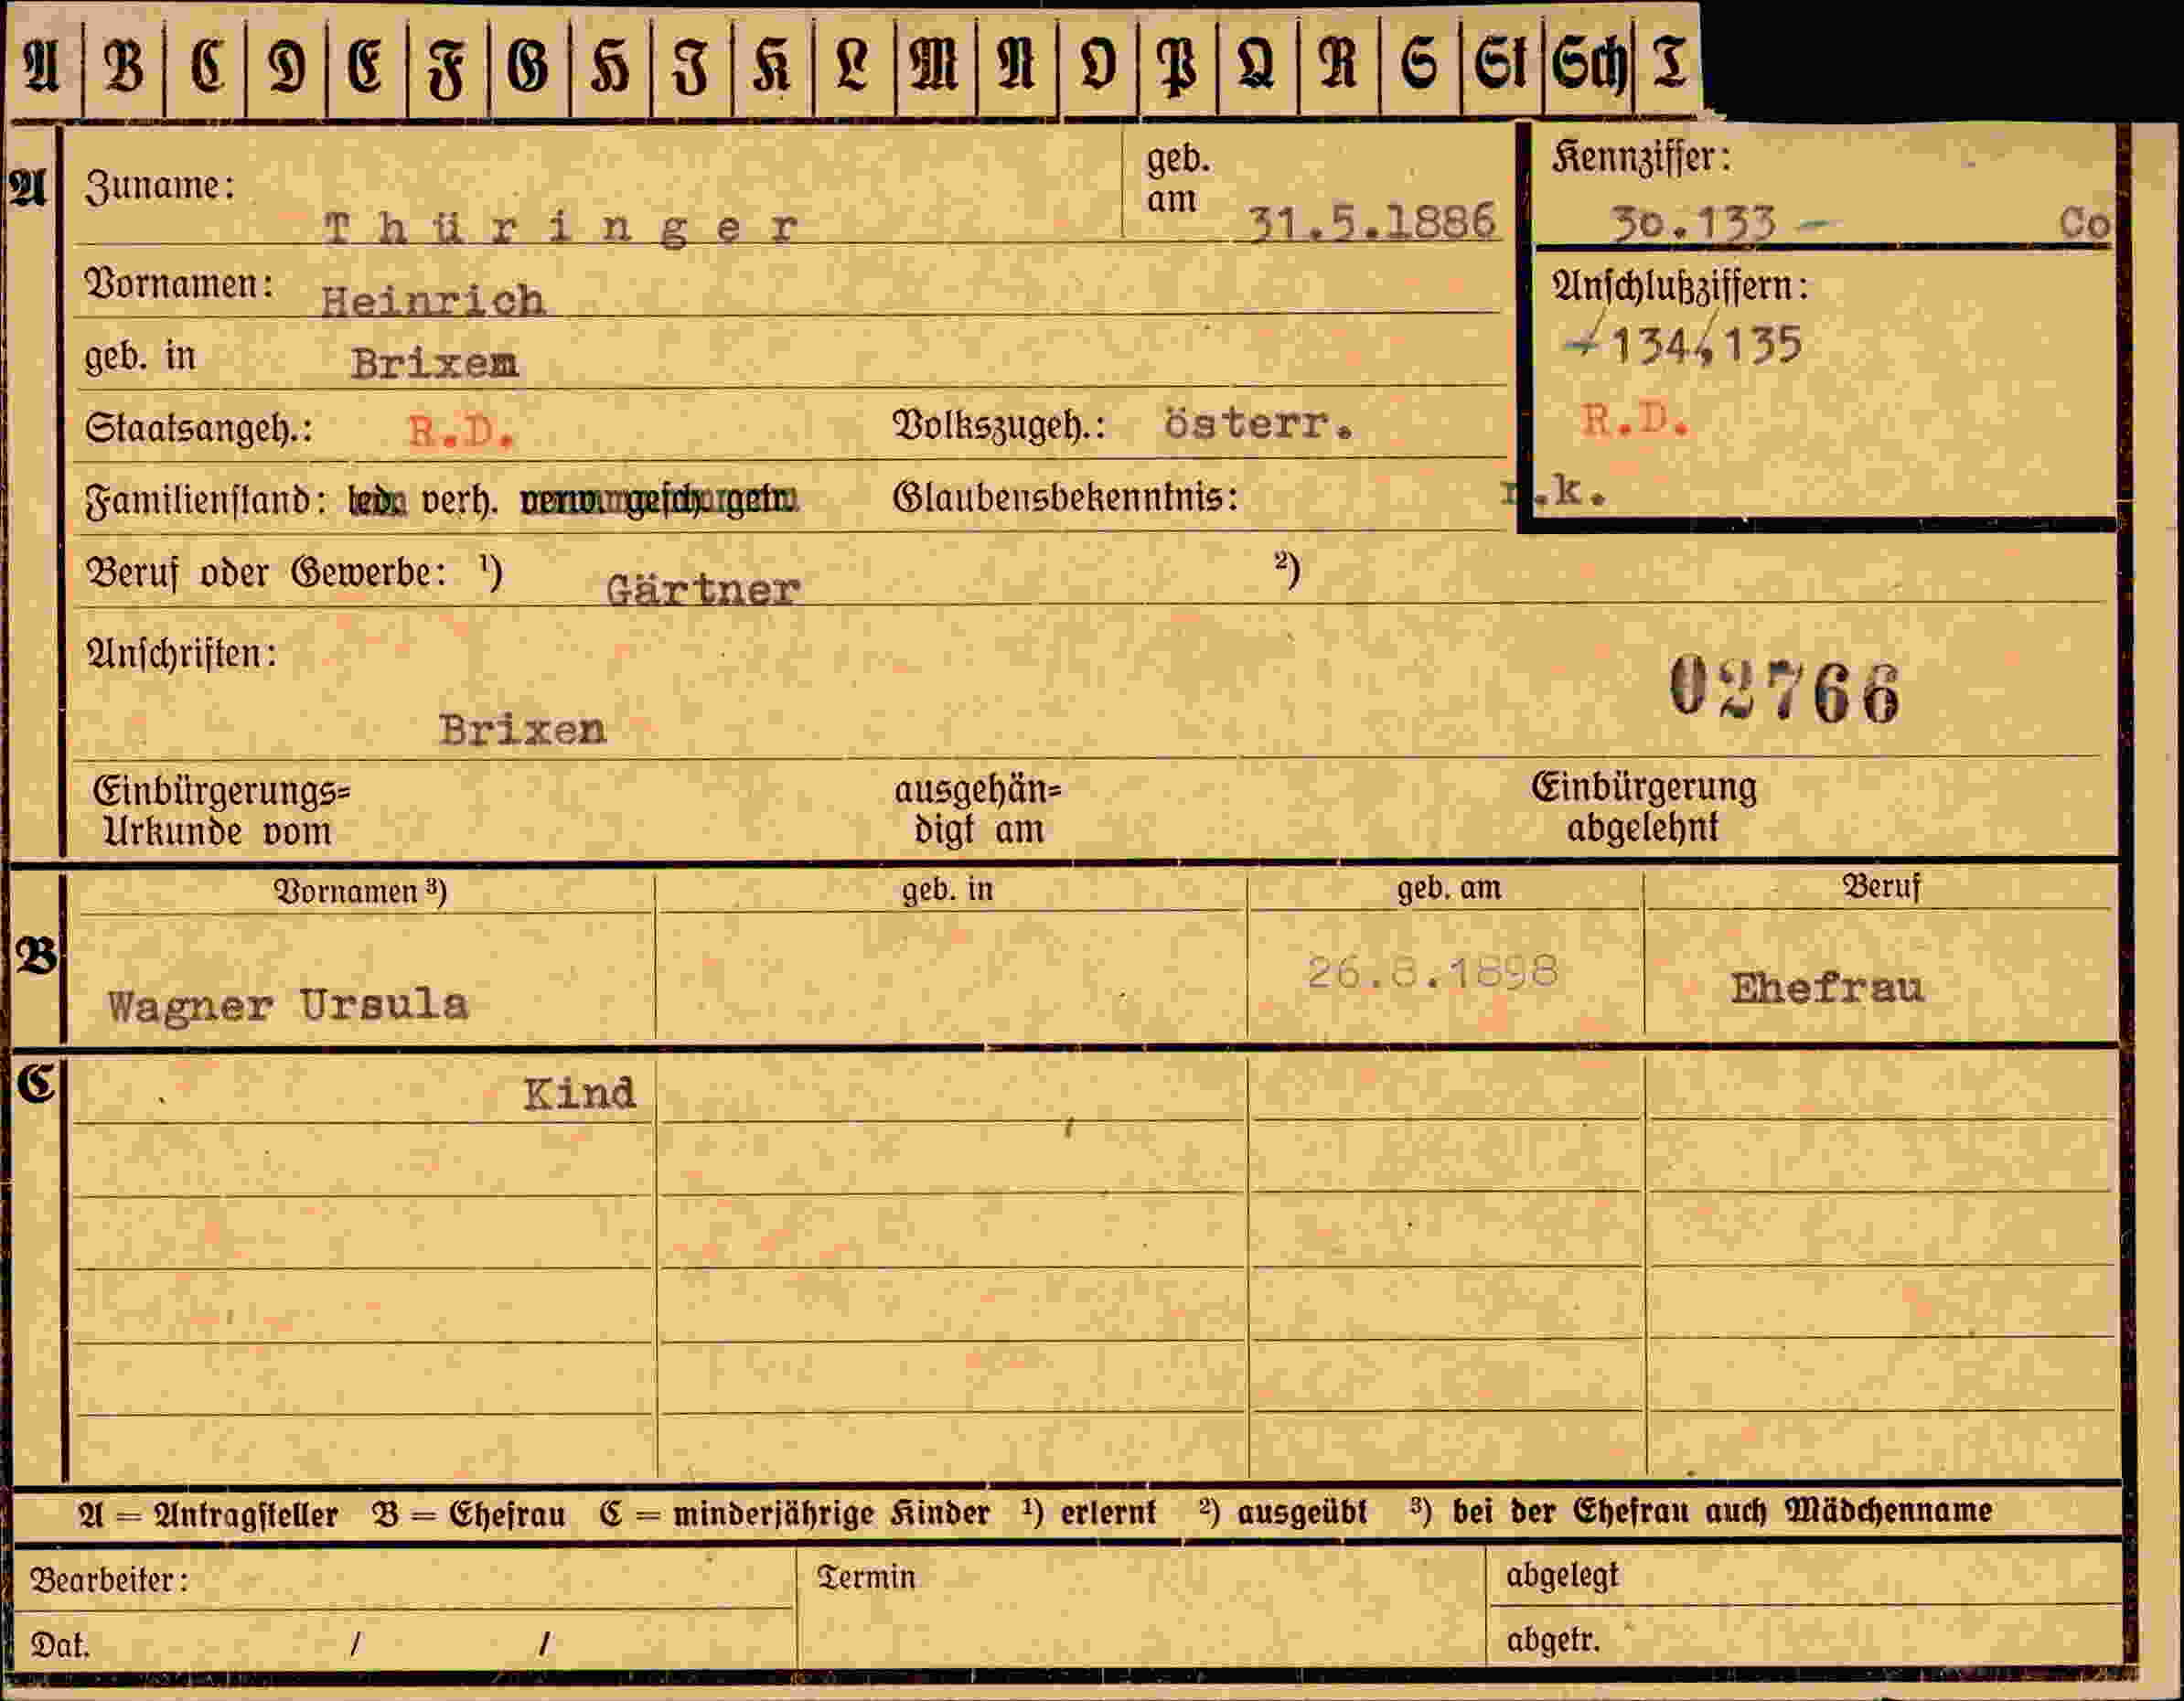 A B C D E F G H I K L M N O P Q R S St Sch T
A
Zuname: Thüringer
geb. am 31.5.1886
Kennziffer:
30.133 - Co
Vornamen: Heinrich
Anschlußziffern:
+134,135
geb. in Brixem
Staatsangeh.: R.D. Volkszugeh.: österr. R.D.
Familienstand: led. verh. verw. gesch. getr. Glaubensbekenntnis: r.k.
Beruf oder Gewerbe: ¹) Gärtner ²)
Anschriften:
02766
Brixen
Einbürgerungs=
Urkunde vom
ausgehän=
digt am
Einbürgerung
abgelehnt
Vornamen ³) geb. in geb. am Beruf
B
Wagner Ursula 26.8.1898 Ehefrau
C
Kind
A = Antragsteller B = Ehefrau C = minderjährige Kinder ¹) erlernt ²) ausgeübt ³) bei der Ehefrau auch Mädchenname
Bearbeiter: Termin abgelegt
Dat. / / abgetr.